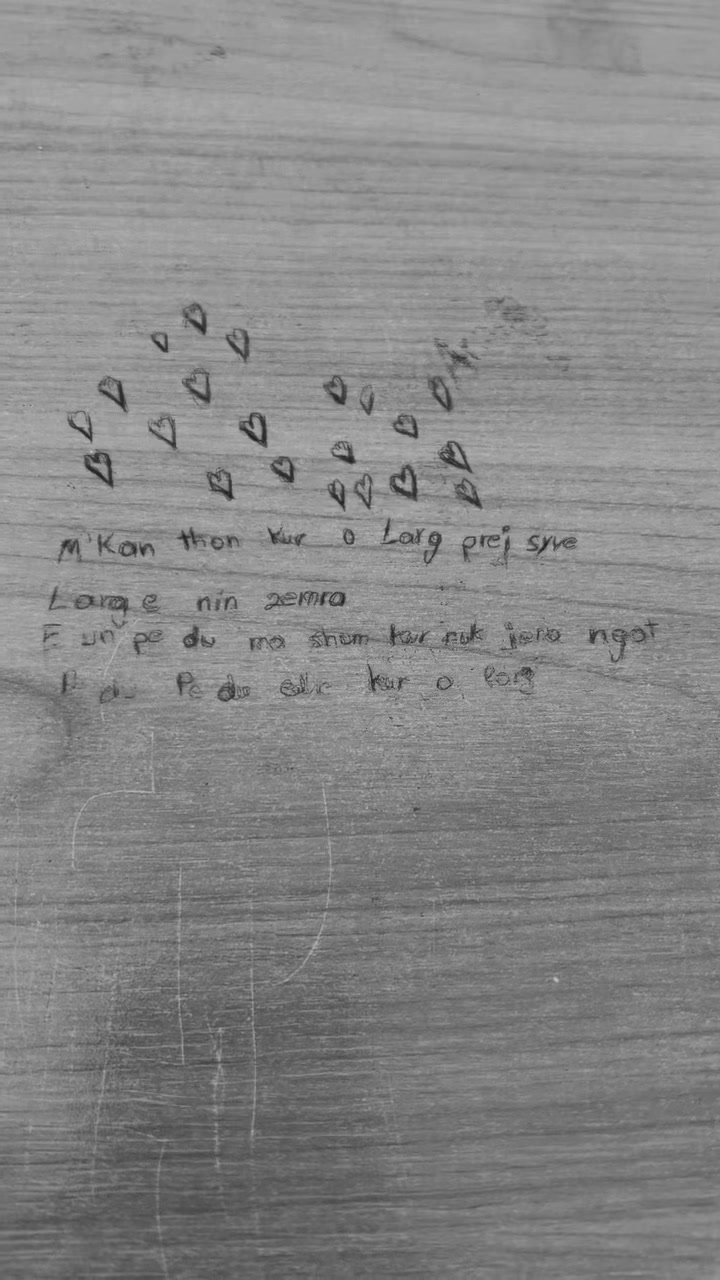 M'Kan thon kur o Larg prej syve
Larg e nin zemra
E un pe du ma shum kur nuk jena ngat
Pe du edhe kur o larg